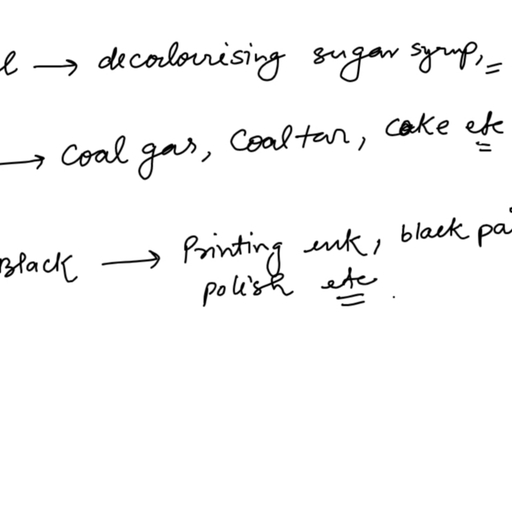 l → decolourising sugar syrup,
→ Coal gas, Coaltar, coke etc
Black → Printing ink, black pa
polish etc.